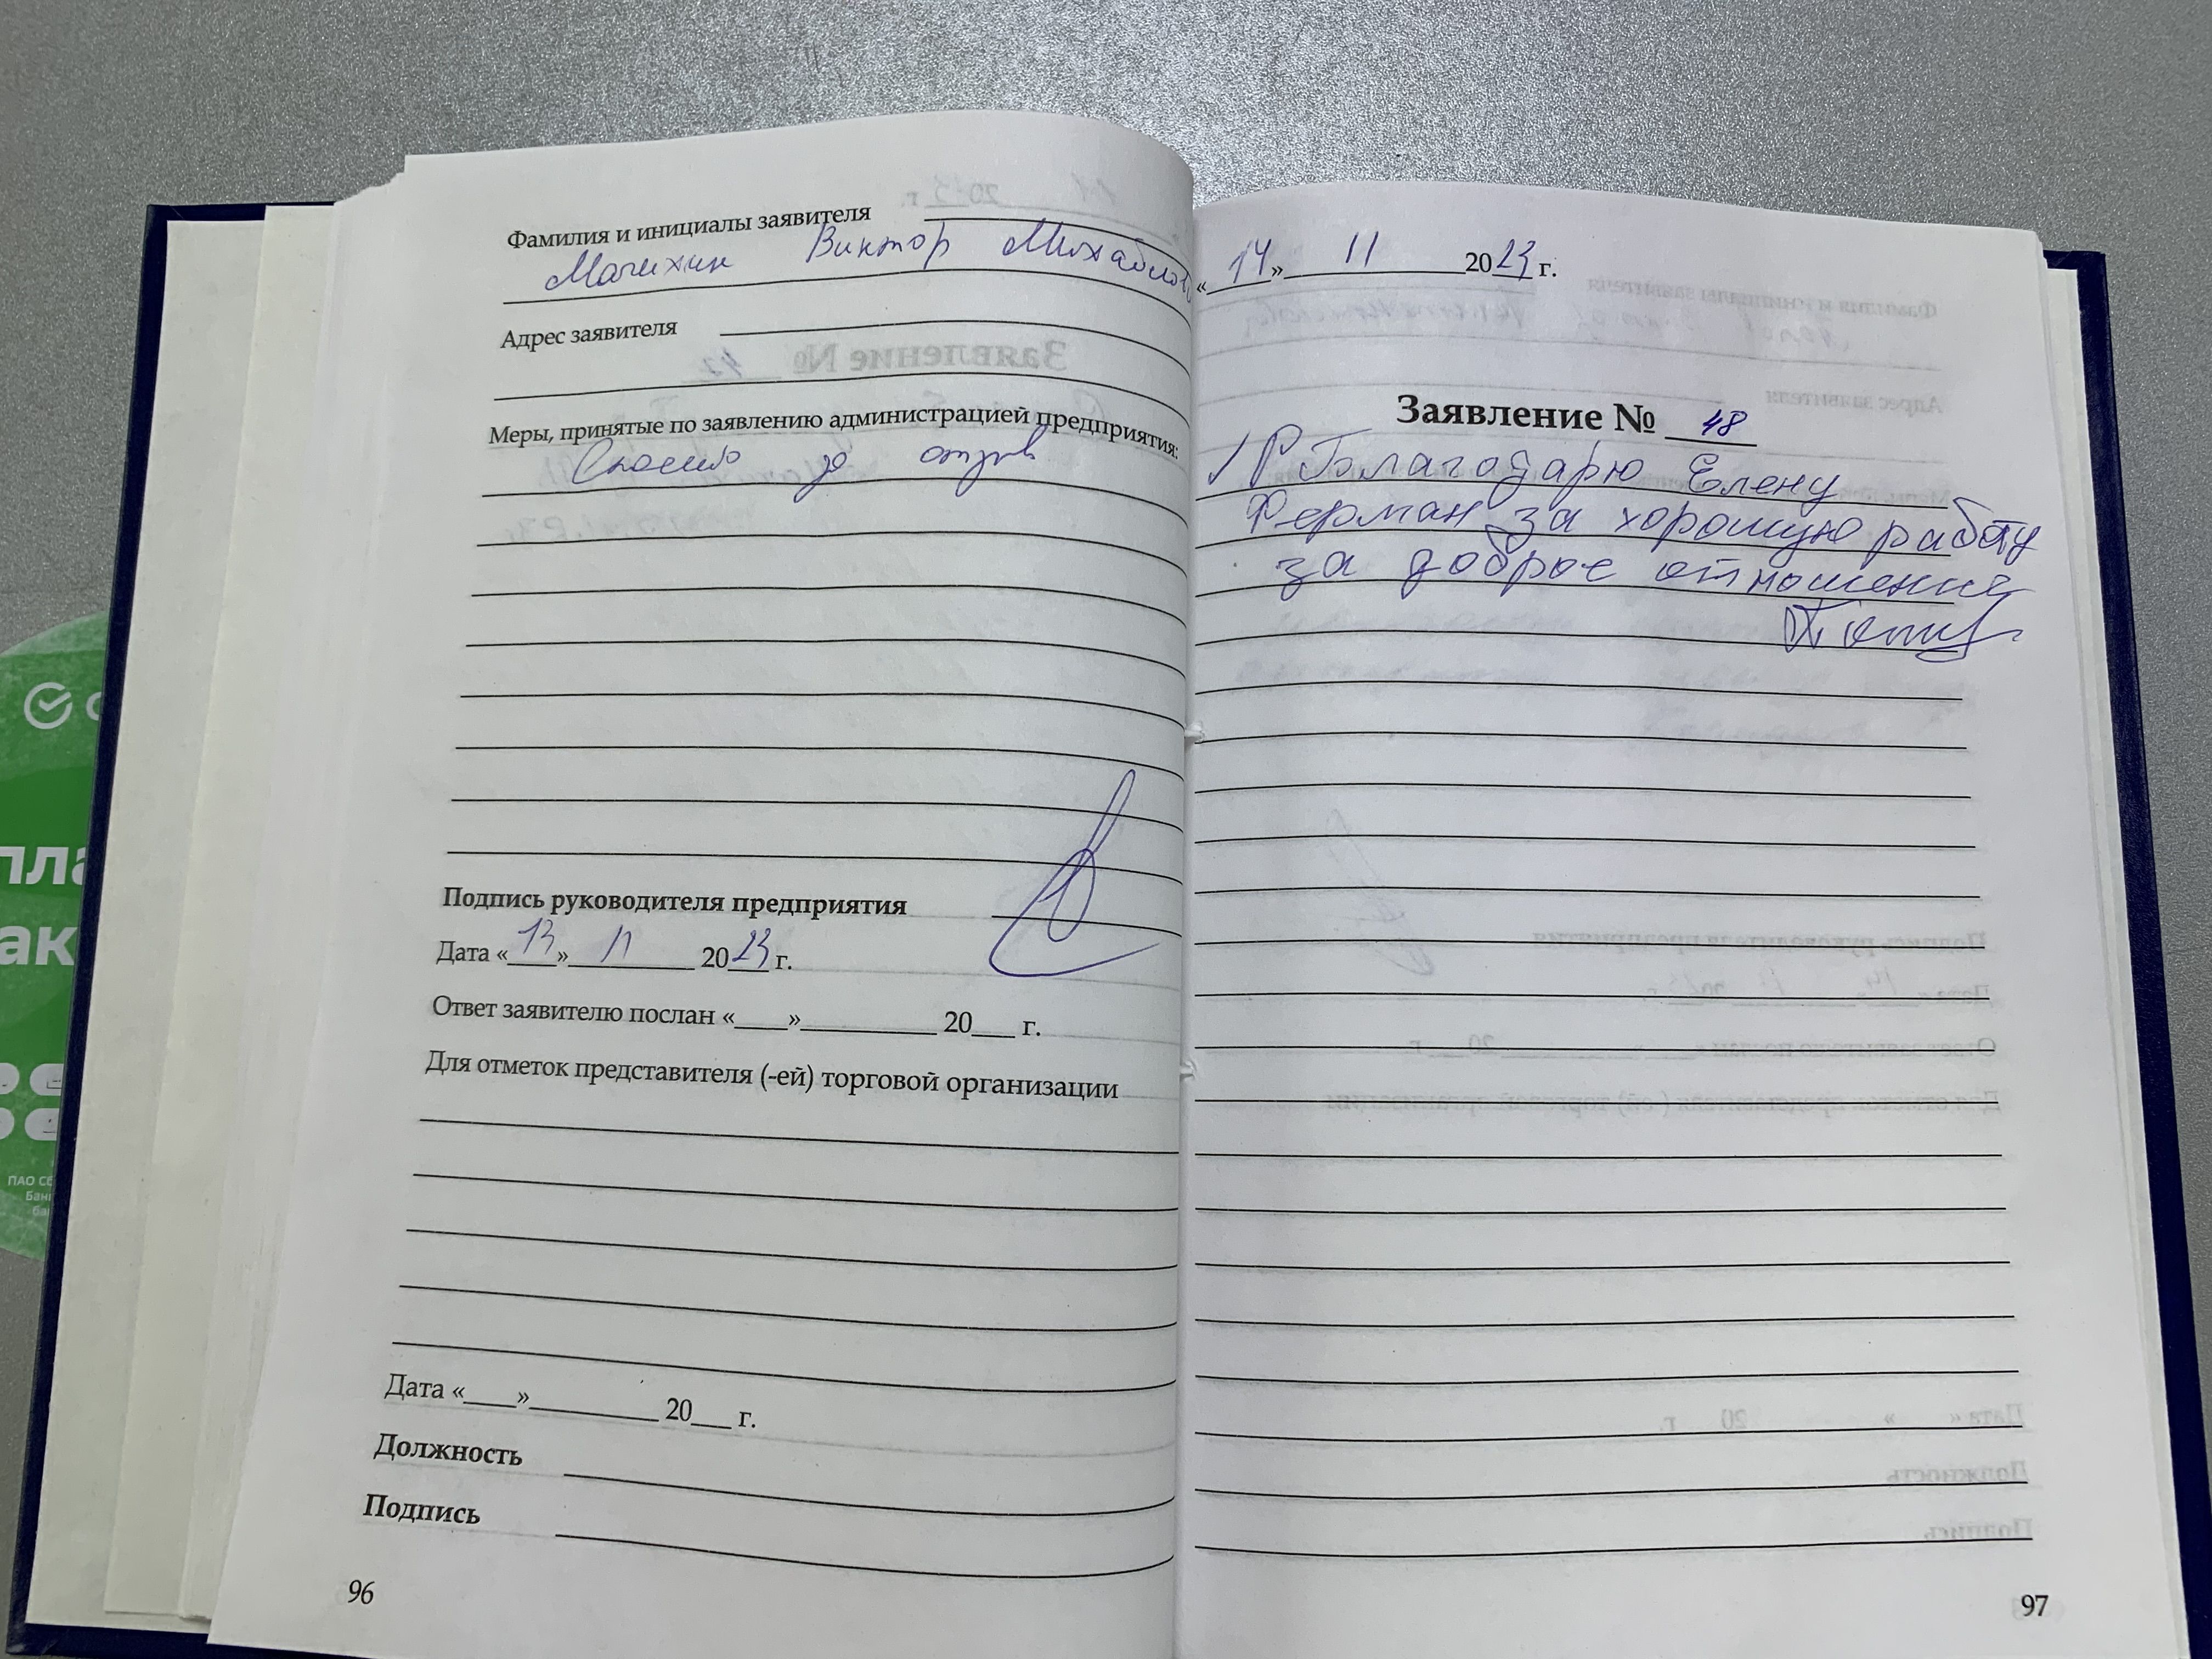 Фамилия и инициалы заявителя
Мочихин Виктор Михайлов
Адрес заявителя
Меры, принятые по заявлению администрацией предприятия:
Спасибо за отзыв
Подпись руководителя предприятия
Дата «13» 11 2023 г.
Ответ заявителю послан «____»__________ 20___ г.
Для отметок представителя (-ей) торговой организации
Дата «____»__________ 20___ г.
Должность
Подпись
96
«14» 11 2023 г.
Заявление № 48
Благодарю Елену
Ферман за хорошую работу
за доброе отношение
97
пла
ак
ПАО Сб
Банк